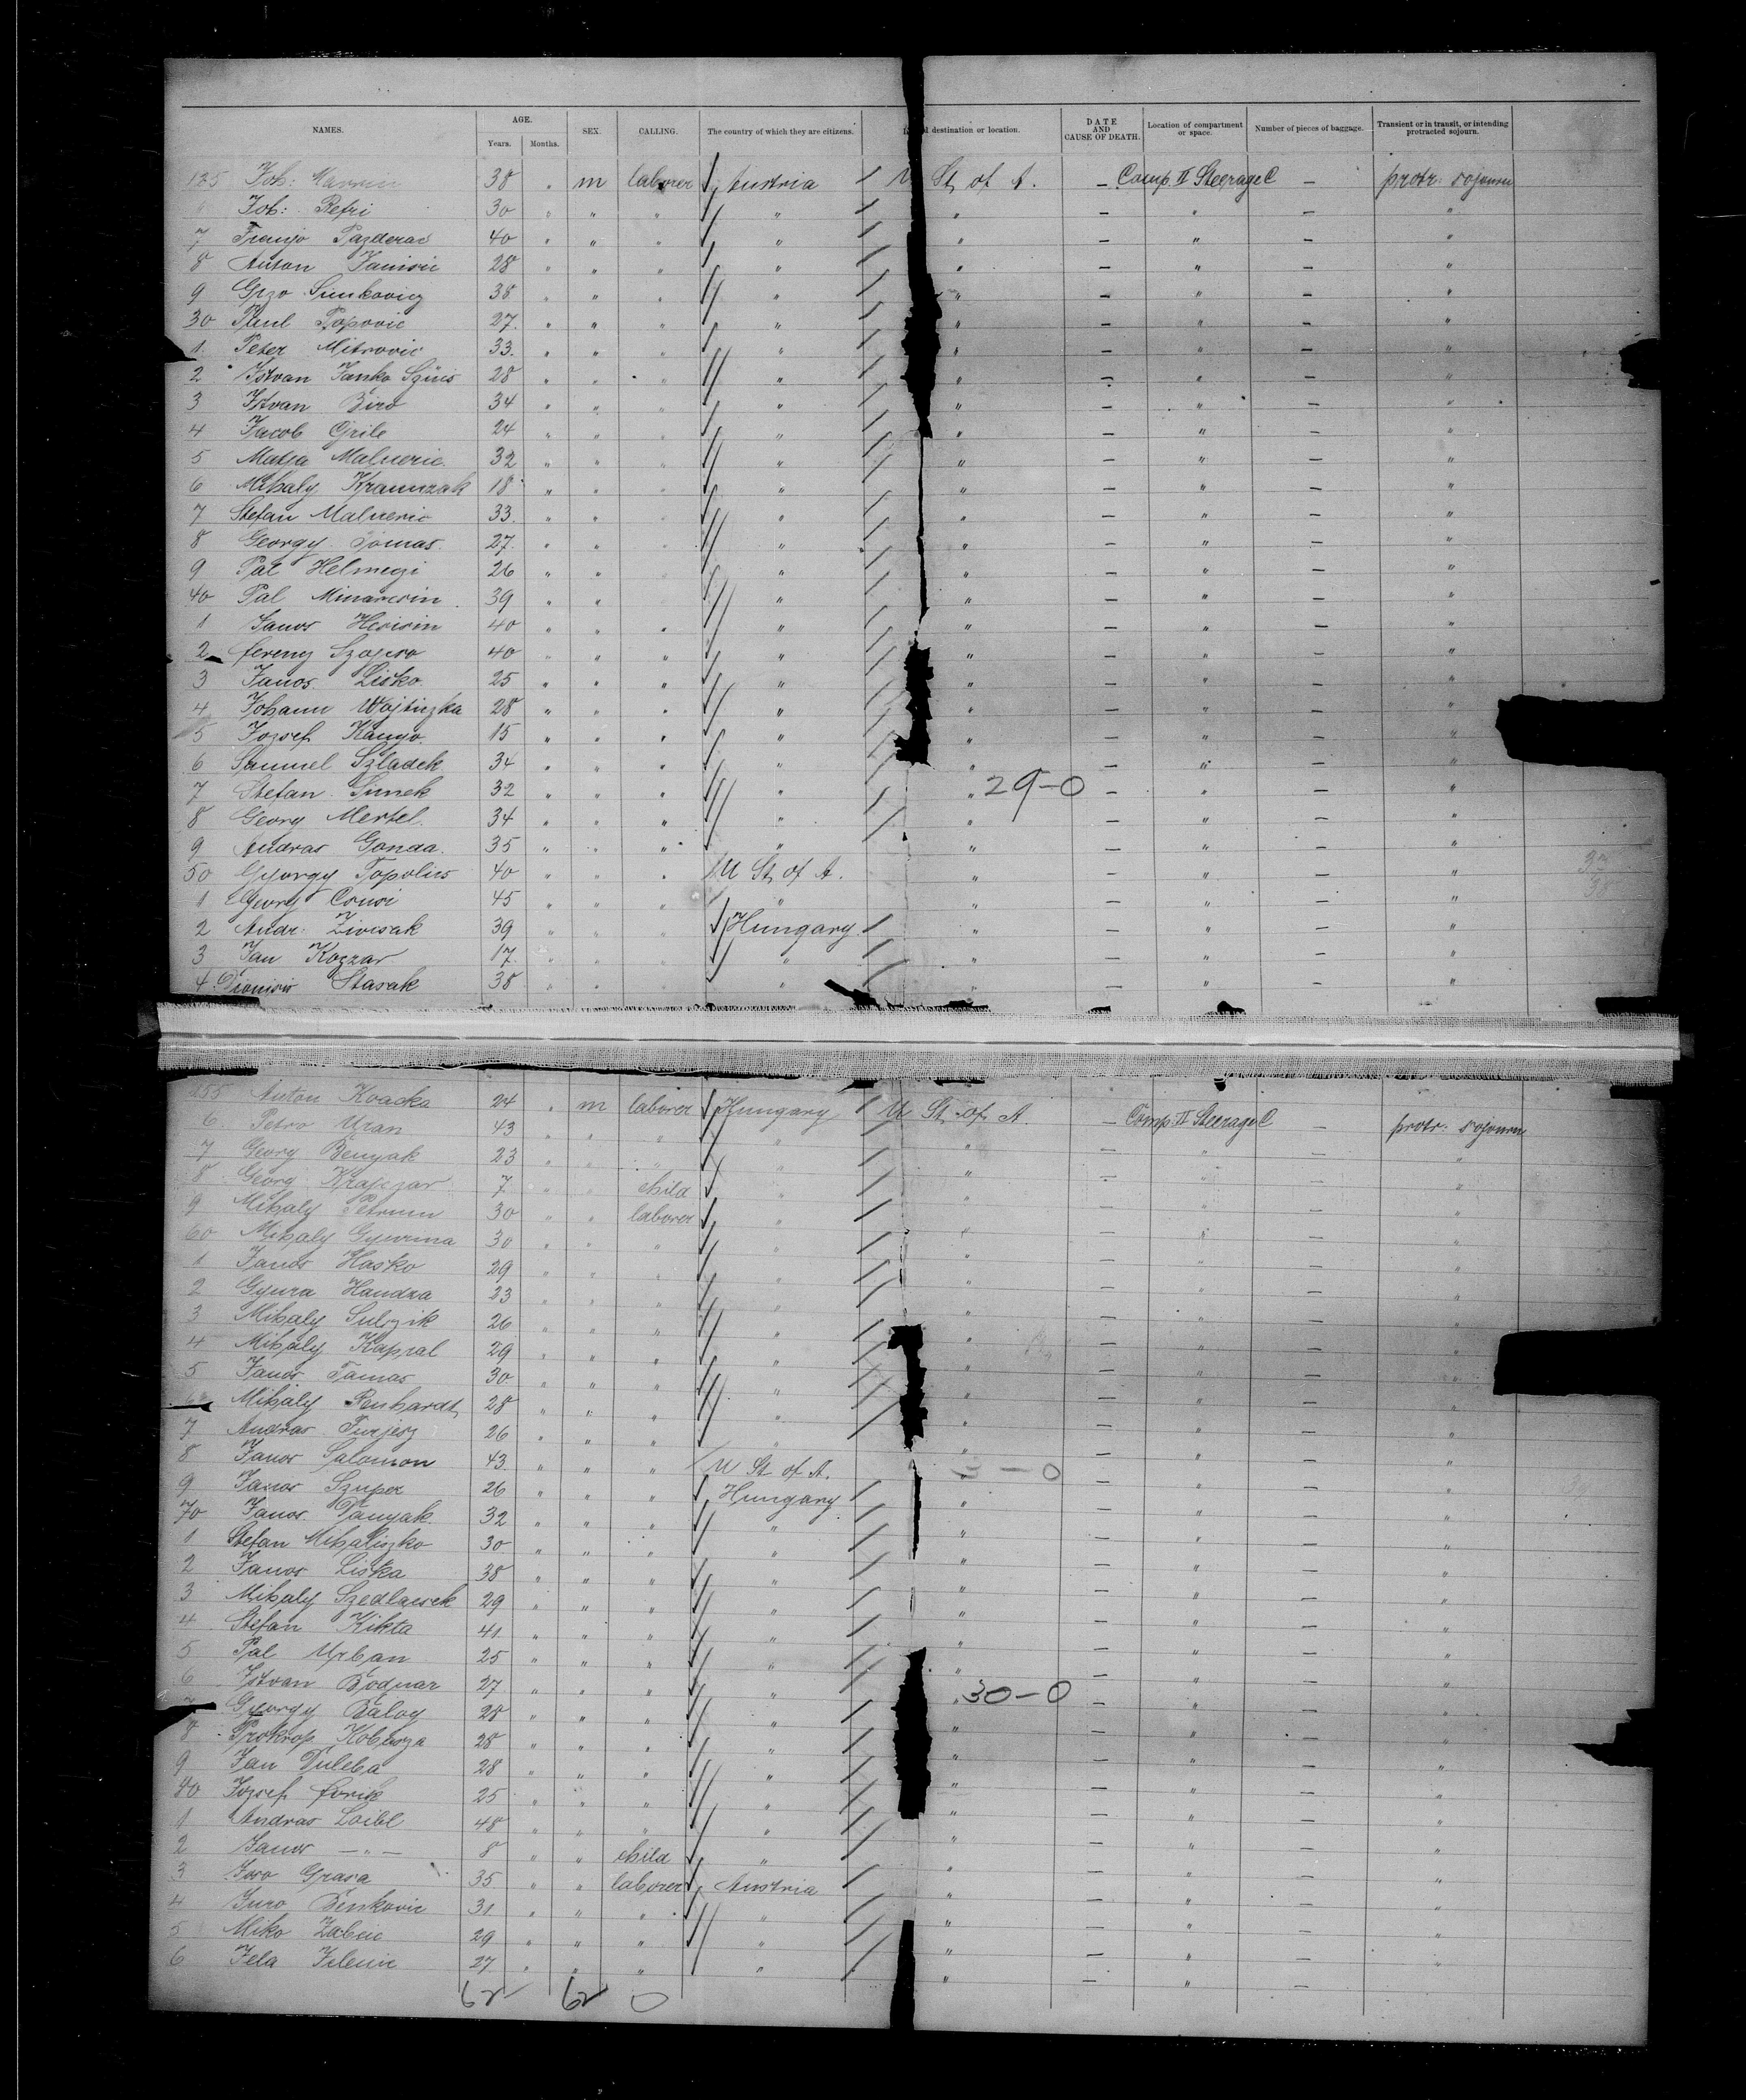 NAMES. AGE. SEX. CALLING. The country of which they are citizens. destination or location. DATE AND CAUSE OF DEATH. Location of compartment or space. Number of pieces of baggage. Transient or in transit, or intending protracted sojourn.
Years. Months.
125 Joh: 38 " m laborer Austria U St. of A. — Comp. II Steerage C — protr. sojourn
Joh: Petri 30 " " " " " — " — "
7 Franjo Pazderac 40 " " " " " — " — "
8 Anton Janisic 28 " " " " " — " — "
9 Grzo Simkovicz 38 " " " " " — " — "
30 Paul Popovic 27. " " " " " — " — "
1. Peter Mitrovic 33. " " " " " — " — "
2 Istvan Janko Szücs 28 " " " " " — " — "
3 Istvan Biro 34 " " " " " — " — "
4 Jacob Grile 24 " " " " " — " — "
5 Matja Malneric 32 " " " " " — " — "
6 Mihaly 18 " " " " " — " — "
7 Stefan Malneric 33. " " " " " — " — "
8 Georgy Tomas 27. " " " " " — " — "
9 Pal Helmeczi 26 " " " " " — " — "
40 Pal 39 " " " " " — " — "
1 Janos 40 " " " " " — " — "
2 Ferency 40 " " " " " — " — "
3 Janos Lisko 25 " " " " " — " — "
4 Johann Wojticzka 28 " " " " " — " — "
5 Jozsef Kanyo 15 " " " " " — " — "
6 Samuel Szladek 34 " " " " " — " — "
7 Stefan Simek 32 " " " " " 29-0 — " — "
8 Georg Mertel 34 " " " " " — " — "
9 Andras Gonda 35 " " " " " — " — "
50 Gyorgy Topolics 40 " " " U St. of A. " — " — "
1 Georg 45 " " " " " — " — "
2 Andr. Zivcsak 39 " " " Hungary " — " — "
3 Jan Kozzar 17. " " " " " — " — "
4. Dionisis Stasak 38 " " " " — " — "
155 Anton Kvacka 24 " m laborer Hungary U St. of A. — Comp. II Steerage C — protr. sojourn
6. Petro Uran 43 " " " " " — " — "
7 Georg Benyak 23 " " " " " — " — "
8 Georg Krajczar 7 " " child " " — " — "
9 Mihaly Petrum 30 " " laborer " " — " — "
60 Mihaly Gyurina 30 " " " " " — " — "
1 Janos Hasko 29 " " " " " — " — "
2 Gyura Handza 23 " " " " " — " — "
3 Mihaly Sulczik 26 " " " " " — " — "
4 Mihaly Kapral 29 " " " " " — " — "
5 Janos Tamas 30 " " " " " — " — "
Mihaly Reinhardt 28 " " " " " — " — "
7 Andras Furjesz 26 " " " " " — " — "
8 Janos Salomon 43 " " " U St. of A. " 3-0 — " — "
9 Janos Szuper 26 " " " Hungary " — " — "
70 Janos Tanyak 32 " " " " " — " — "
1 Stefan Mihaliszko 30 " " " " " — " — "
2 Janos Liska 38 " " " " " — " — "
3 Mihaly Szedlacsek 29 " " " " " — " — "
4 Stefan Kikta 41 " " " " " — " — "
5 Pal Urban 25 " " " " " — " — "
6 Istvan Bodnar 27 " " " " " — " — "
Gyorgy Balog 28 " " " " " 30-0 — " — "
8 Prokop Kobasza 28 " " " " " — " — "
9 Jan Duleba 28 " " " " " — " — "
80 Jozsef 25 " " " " " — " — "
1 Andras Loibl 48 " " " " " — " — "
2 Janos — " — 8 " " child " " — " — "
3 Ivo Grasa 35 " " laborer Austria " — " — "
4 Juro Benkovic 31 " " " " " — " — "
5 Miko Zabcic 29 " " " " " — " — "
6 Jela 27 " " " " " — " —
62 62 0